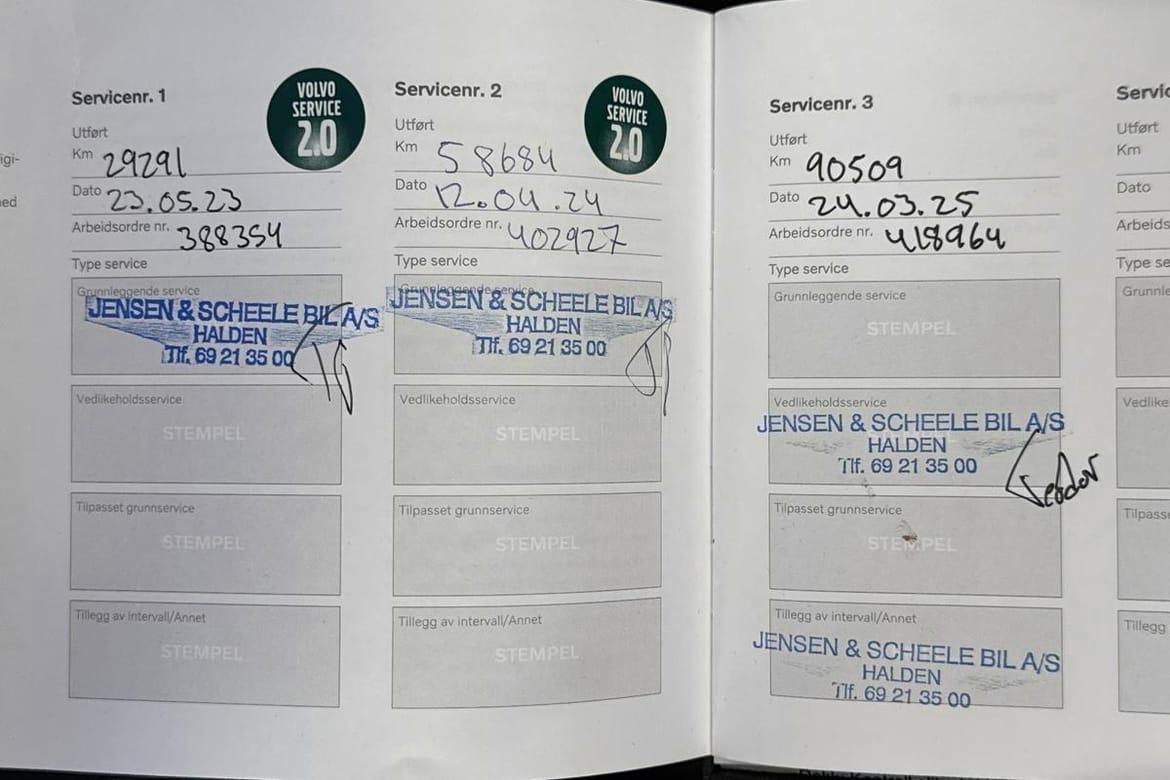 igi-
ed
Servicenr. 1
VOLVO
SERVICE
2.0
Utført
Km 29291
Dato 23.05.23
Arbeidsordre nr. 388354
Type service
Grunnleggende service
JENSEN & SCHEELE BIL A/S
HALDEN
Tlf. 69 21 35 00
Vedlikeholdsservice
STEMPEL
Tilpasset grunnservice
STEMPEL
Tillegg av intervall/Annet
STEMPEL
Servicenr. 2
VOLVO
SERVICE
2.0
Utført
Km 58684
Dato 12.04.24
Arbeidsordre nr. 402927
Type service
Grunnleggende service
JENSEN & SCHEELE BIL A/S
HALDEN
Tlf. 69 21 35 00
Vedlikeholdsservice
STEMPEL
Tilpasset grunnservice
STEMPEL
Tillegg av intervall/Annet
STEMPEL
Servicenr. 3
Utført
Km 90509
Dato 24.03.25
Arbeidsordre nr. 418964
Type service
Grunnleggende service
STEMPEL
Vedlikeholdsservice
JENSEN & SCHEELE BIL A/S
HALDEN
Tlf. 69 21 35 00
Teodor
Tilpasset grunnservice
STEMPEL
Tillegg av intervall/Annet
JENSEN & SCHEELE BIL A/S
HALDEN
Tlf. 69 21 35 00
Servic
Utført
Km
Dato
Arbeids
Type se
Grunnle
Vedlike
Tilpass
Tillegg